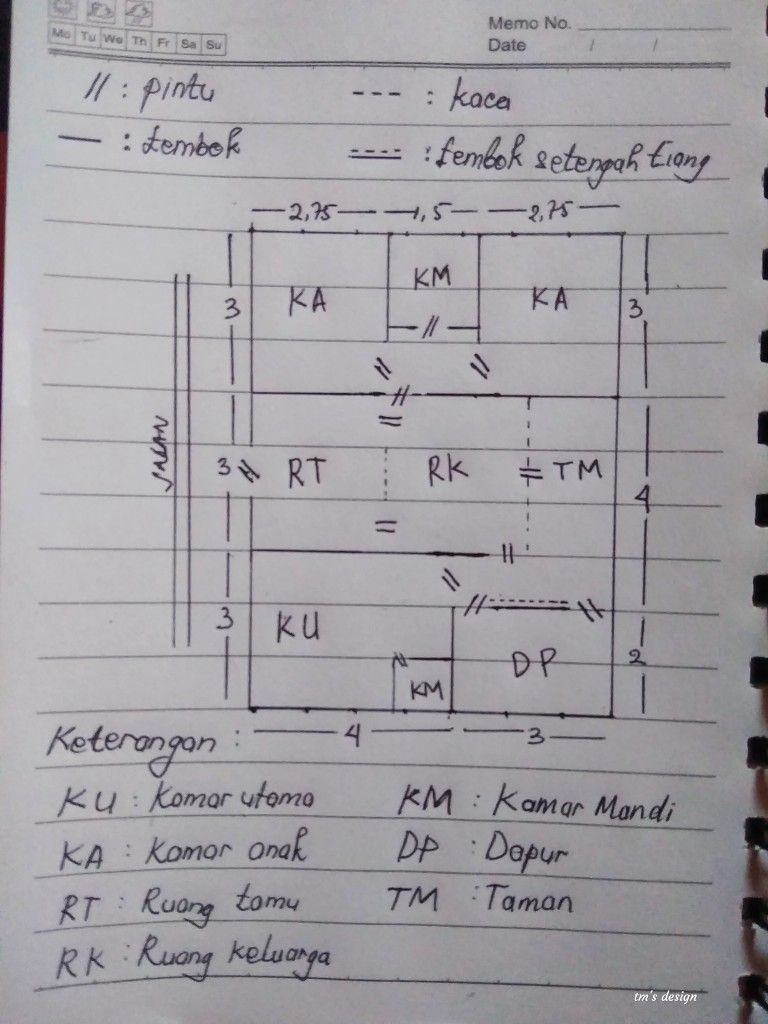 Memo No.
Mo Tu We Th Fr Sa Su
Date / /
// : pintu --- : kaca
— : tembok : tembok setengah tiang
2,75 1,5 2,75
KA KM KA
3 3
JALAN
3 RT RK TM
4
3 KU
DP 2
KM
4 3
Keterangan :
KU : Kamar utama KM : Kamar Mandi
KA : Kamar anak DP : Dapur
RT : Ruang tamu TM : Taman
RK : Ruang keluarga
tm's design